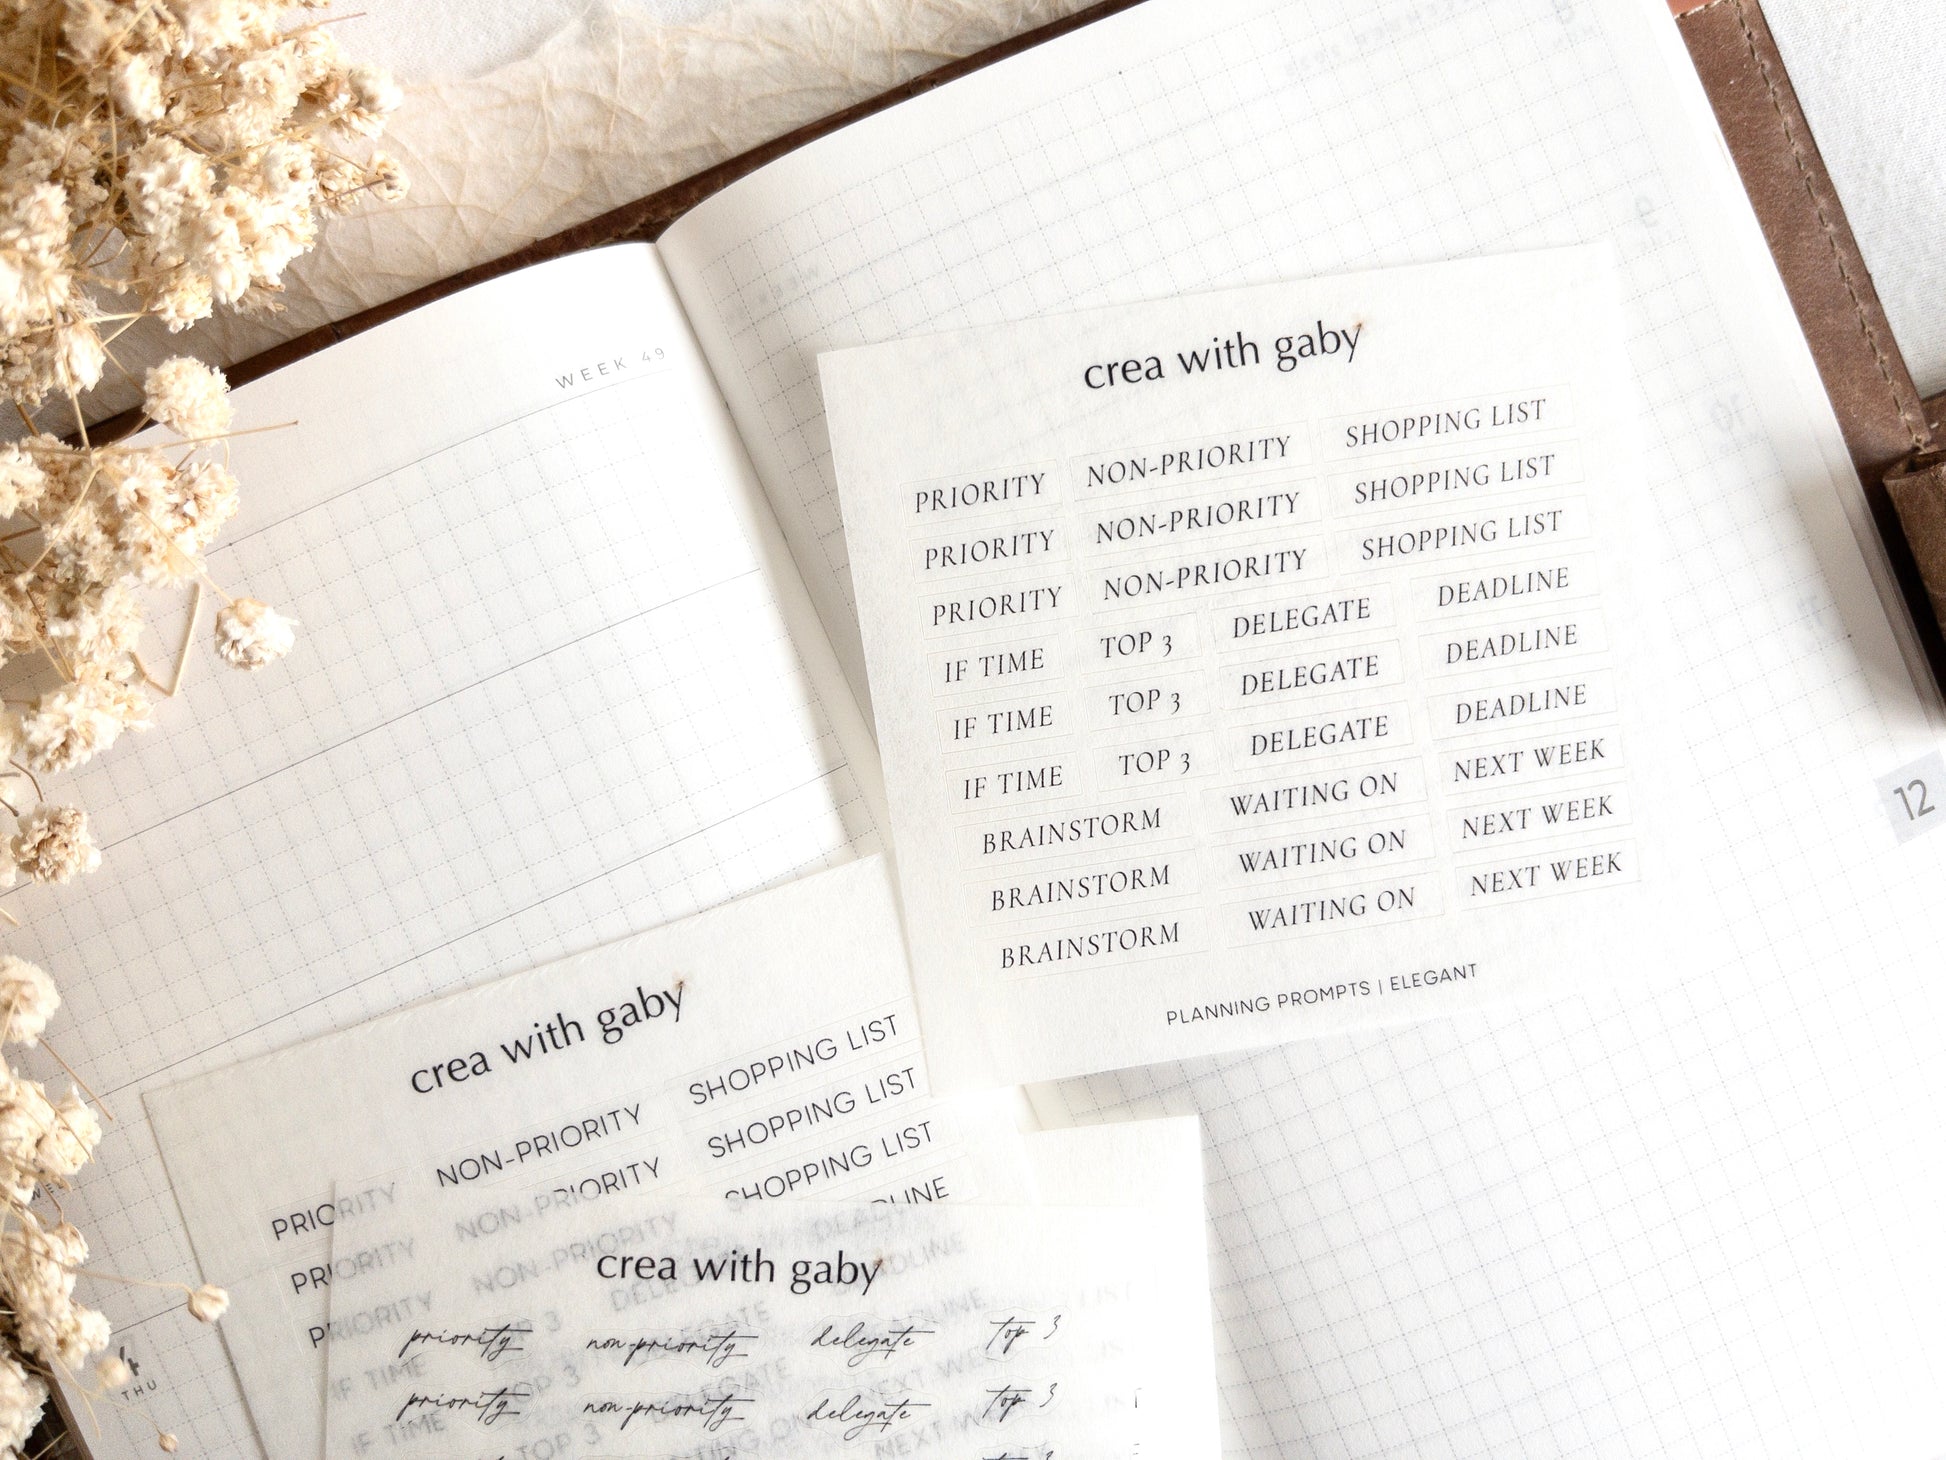 WEEK 49
crea with gaby
PRIORITY NON-PRIORITY SHOPPING LIST
PRIORITY NON-PRIORITY SHOPPING LIST
PRIORITY NON-PRIORITY SHOPPING LIST
IF TIME TOP 3 DELEGATE DEADLINE
IF TIME TOP 3 DELEGATE DEADLINE
IF TIME TOP 3 DELEGATE DEADLINE
BRAINSTORM WAITING ON NEXT WEEK
BRAINSTORM WAITING ON NEXT WEEK
BRAINSTORM WAITING ON NEXT WEEK
PLANNING PROMPTS | ELEGANT
12
crea with gaby
PRIORITY NON-PRIORITY SHOPPING LIST
PRIORITY NON-PRIORITY SHOPPING LIST
PRIORITY NON-PRIORITY SHOPPING LIST
IF TIME TOP 3 DELEGATE DEADLINE
IF TIME TOP 3 DELEGATE DEADLINE
crea with gaby
priority non-priority delegate top 3
priority non-priority delegate top 3
4
THU